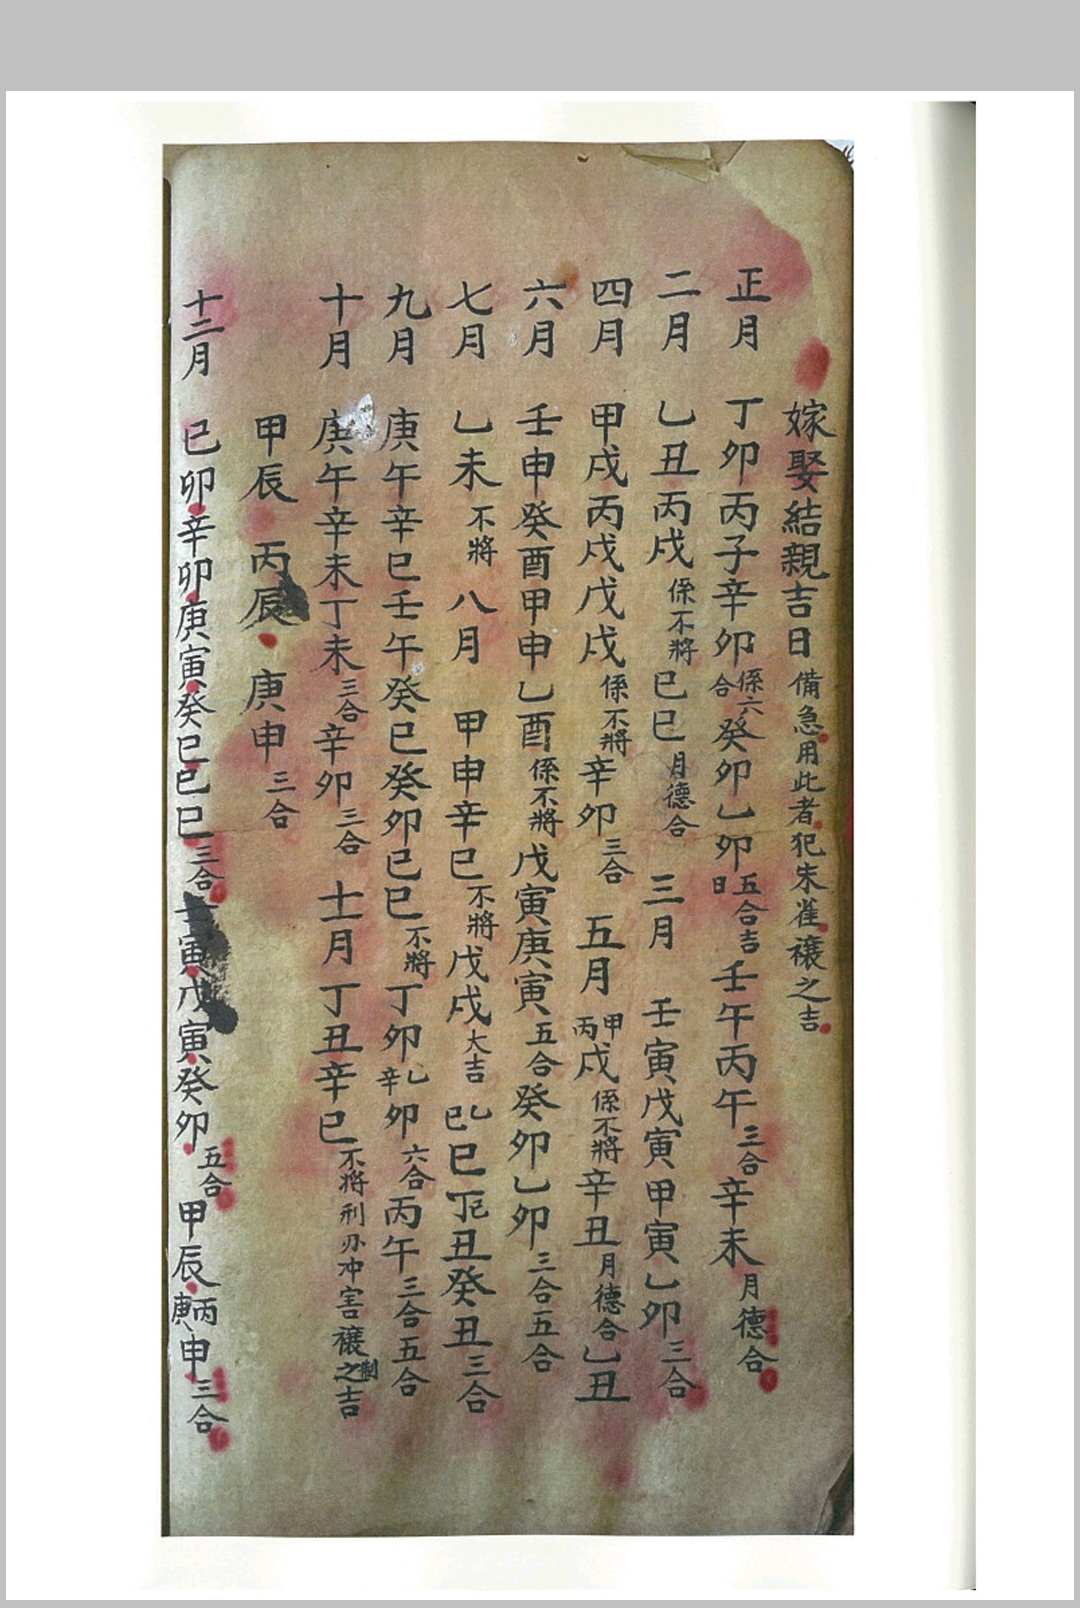 嫁娶結親吉日 備急用此者犯朱雀禳之吉
正月 丁卯丙子辛卯 係六合 癸卯乙卯 五合吉日 壬午丙午 三合 辛未 月德合
二月 乙丑丙戌 係不將 己巳 月德合 三月 壬寅戊寅甲寅乙卯 三合
四月 甲戌丙戌戊戌 係不將 辛卯 三合 五月 甲丙戌 係不將 辛丑 月德合 乙丑
六月 壬申癸酉甲申乙酉 係不將 戊寅庚寅 五合 癸卯乙卯 三合五合
七月 乙未 不將 八月 甲申辛巳 不將 戊戌 大吉 乙己巳丁己丑癸丑 三合
九月 庚午辛巳壬午癸巳癸卯己巳 不將 丁卯乙辛卯 六合 丙午 三合五合
十月 庚午辛未丁未 三合 辛卯 三合 十一月 丁丑辛巳 不將刑冲害禳之制吉
甲辰 丙辰 庚申 三合
十二月 己卯辛卯庚寅癸巳己巳 三合 壬寅戊寅癸卯 五合 甲辰丙庚申 三合